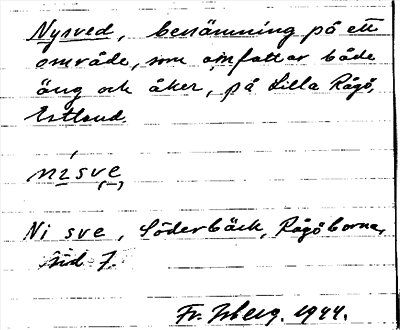 Nysved, benämning på ett
område, som omfattar både
äng och åker, på Lilla Rågö,
Estland
nisve
Ni sve, Söderbäck, Rågöborna,
sid 7.
Fr. 1944.